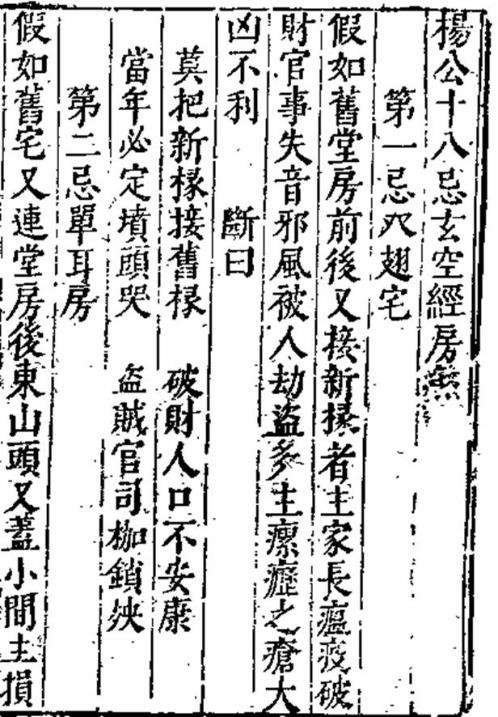 楊公十八忌玄空經房煞
第一忌尺翅宅
假如舊堂房前後又接新椽者主家長瘟疫破
財官事失音邪風被人劫盜多生瘰癧之瘡大
凶不利　斷曰
莫把新椽接舊椽　破財人口不安康
當年必定墳頭哭　盗賊官司枷鎖殃
第二忌單耳房
假如舊宅又連堂房後東山頭又蓋小間主損